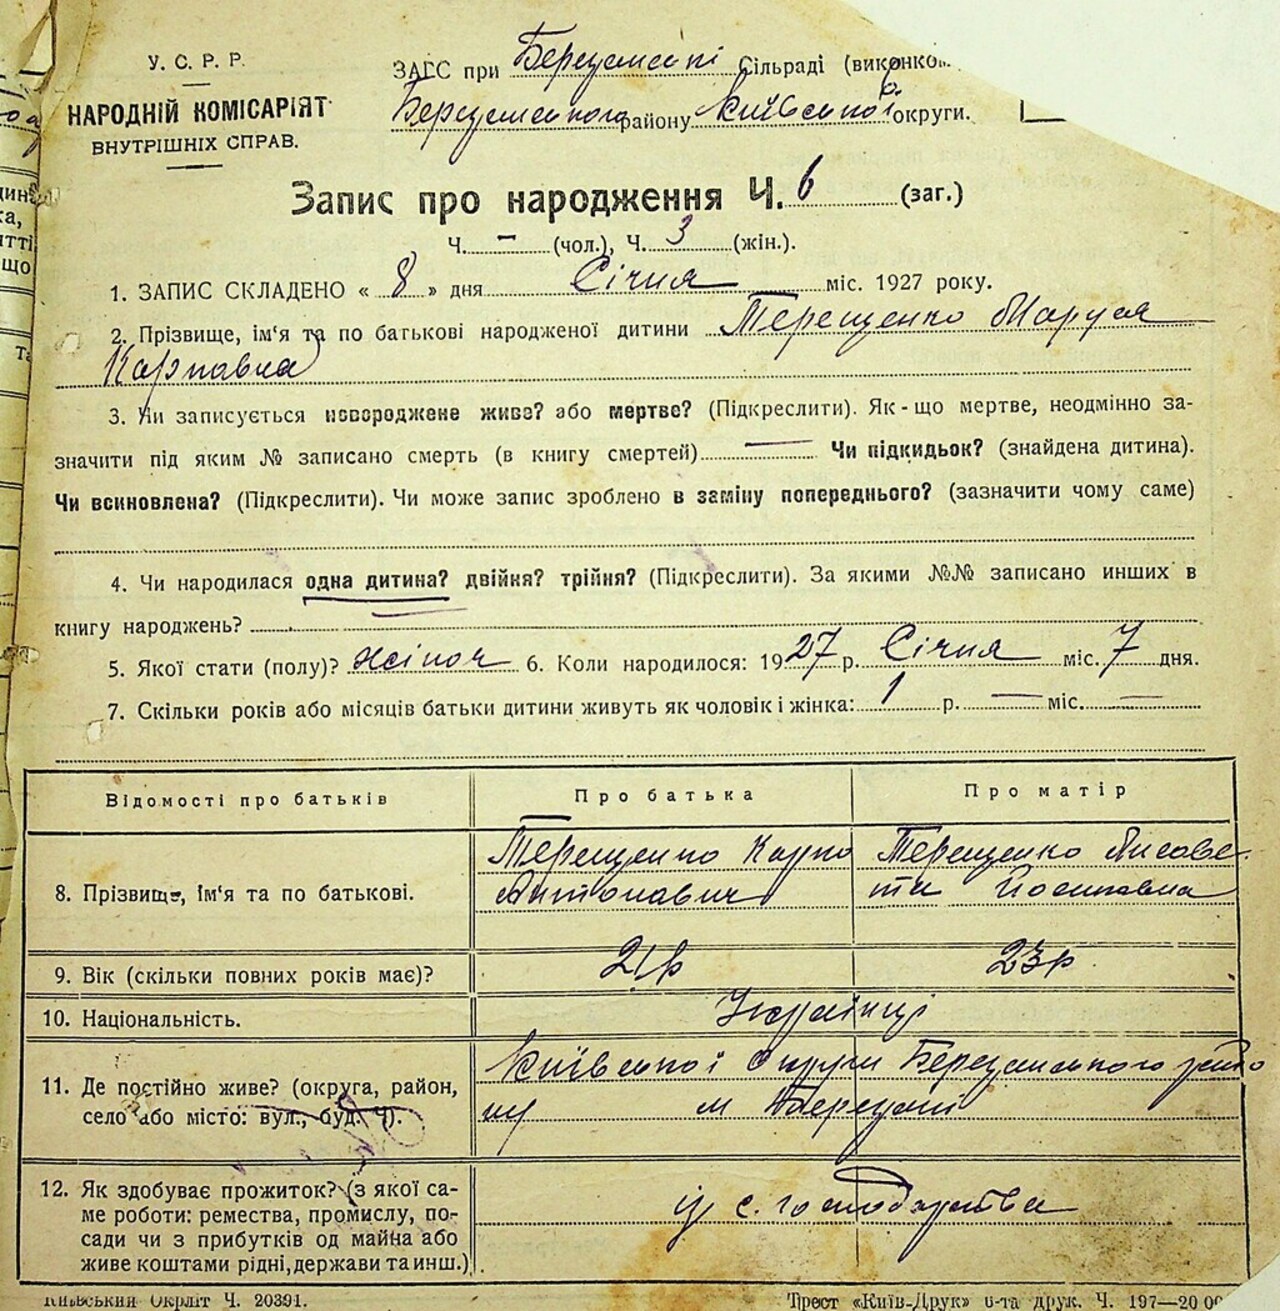 У. С. Р. Р.
НАРОДНІЙ КОМІСАРІЯТ
ВНУТРІШНІХ СПРАВ.
ЗАГС при Березанські Сільраді (виконком
Березанського району Київської округи.
Запис про народження Ч. 6 (заг.)
Ч. – (чол.), Ч. 3 (жін.).
1. ЗАПИС СКЛАДЕНО « 8 » дня Січня міс. 1927 року.
2. Прізвище, ім'я та по батькові народженої дитини Терещенко Маруся
Карпавна
3. Чи записується новороджене живе? або мертве? (Підкреслити). Як-що мертве, неодмінно за-
значити під яким № записано смерть (в книгу смертей) — Чи підкидьок? (знайдена дитина).
Чи всиновлена? (Підкреслити). Чи може запис зроблено в заміну попереднього? (зазначити чому саме)
4. Чи народилася одна дитина? двійня? трійня? (Підкреслити). За якими №№ записано инших в
книгу народжень?
5. Якої стати (полу)? жіноч 6. Коли народилося: 1927 р. Січня міс. 7 дня.
7. Скільки років або місяців батьки дитини живуть як чоловік і жінка: 1 р. — міс. —
Відомості про батьків Про батька Про матір
8. Прізвище, ім'я та по батькові. Терещенко Карпо Антонавич Терещенко Лисове-
та Йосипавна
9. Вік (скільки повних років має)? 21р 23р.
10. Національність. Українці
11. Де постійно живе? (округа, район,
село або місто: вул., буд. Ч). Київської округи Березанського райо
ну м Березані
12. Як здобуває прожиток? (з якої са-
ме роботи: ремества, промислу, по-
сади чи з прибутків од майна або
живе коштами рідні, держави та инш.) із с. господарства
Київський Окрліт Ч. 20391. Трест «Київ-Друк» 6-та друк. Ч. 197—20 00